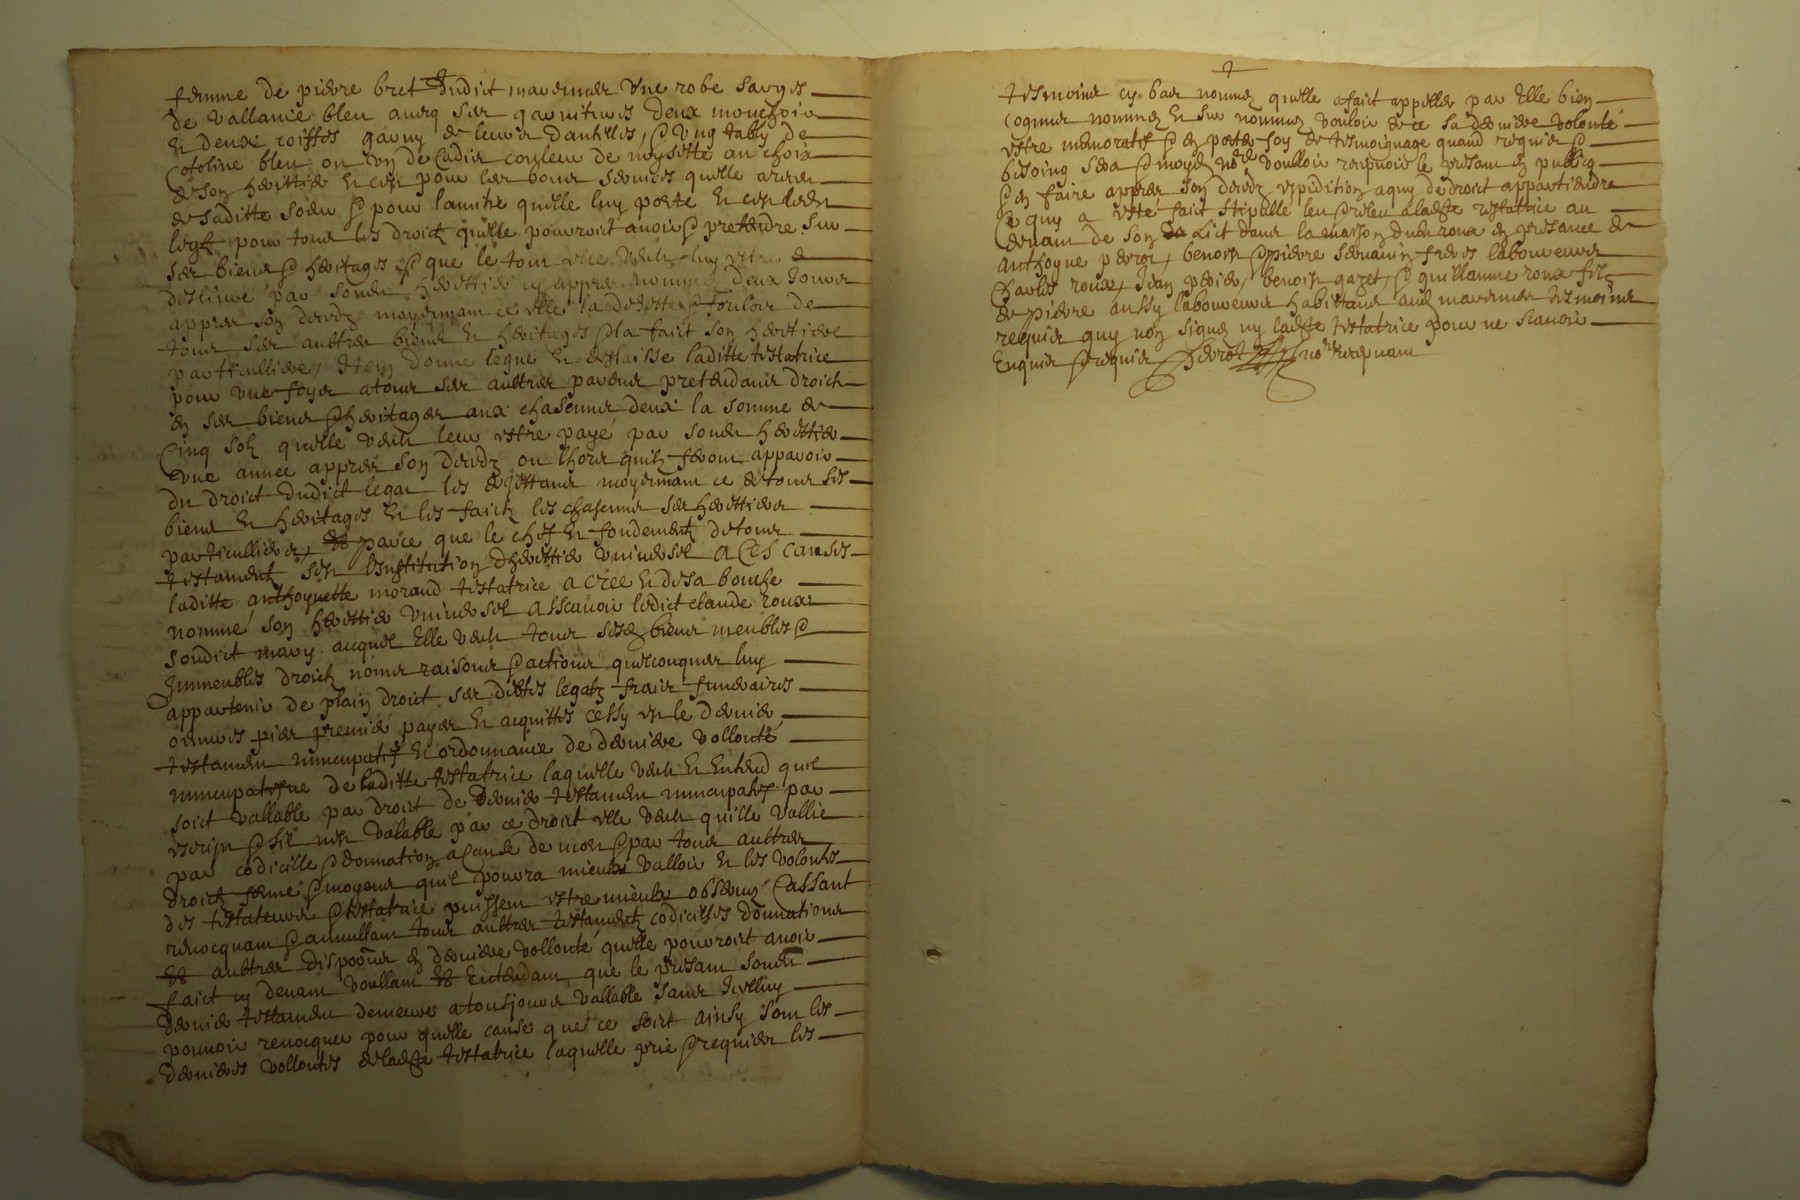 femme de pierre bret dudict mavernier une robe sarges
de vallance bleu avecq ses garnitures deux mouchoirs
et deux coiffes garny de leurs dantelles, et ung tably de
cotoline bleu ou bien de cadis couleur de noysette au choix
de son herittier et c'est pour les bons services quelle a receu
de saditte soeur et pour lamitie quelle luy porte et en
legat pour tous les droictz quelle pourroit avoir et pretendre sur
ses biens et heritages et que le tout elle veult luy estre
deslivre par sondit herittier cy appres nomme deux jours
appres son decedz moyennant ce elle la desiette et forclos de
tous ses aultres biens et heritages et la faict son heritiere
particulliere, Item donne legue et deslaisse laditte testatrice
pour une foys a tous ses aultres parens pretendans droict
en ses biens et heritages aux chascuns deux la somme de
Cinq solz quelle veult leur estre paye par sondit herittier
une annee appres son decedz ou lhors quilz feront apparoir
du droict dudict legat les dejettant moyennant ce de tous ses
biens et heritages et les faict les chascuns ses herittiers
particulliers, parce que le chef et fondement de tous
testamentz sest linstitution dherittier universel a Ces causes
laditte anthoynette morand testatrice a cree et de sa bouche
nomme son herittier universel assavoir ledict claude roux
sondict mary auquel elle veult tous sesdz biens meubles et
Immeubles droictz noms raisons et actions quelconques luy
appartenir de plain droict ses dittes legatz frais funeraires
oeuvres pies premier payer et acquittes Cessy est le dernier
testament nuncupatif et ordonnance de derniere vollonte
nuncupative de laditte testatrice laquelle veult et entend quil
soict vallable par droict de dernier testament nuncupatif par
escript et sil nest valable par ce droict elle veult quille vallie
par codicille et donnation a cause de mort et par tous aultres
droictz forme et moyens quil pourra mieulx valloir et les volontes
des testateurs et testatrice puissent estre mieulx observez Cassant
revocquant et annullant tous aultres testamentz codicilles donnations
et aultres disponnes en derniere vollonte quelle pourroict avoir
faict cy devant voullant et entendant que le presant sondit
dernier testament demeure a tousjours vallable sans icelluy
pouvoir revocquer pour quelle cause que ce soict ainsy sont les
dernieres vollontes de ladte testatrice laquelle prie et requier les
tesmoins cy bas nommez quelle a faict appeller par elle bien
cogneus nommez et sur nommez vouloir de ce sa derniere volonte
estre memoratifz et en porter foy de tesmoignage quand requier et
besoing sera et moyd nore voulloir recepvoir le presant en publicq
et en faire appres son decedz expedition a quy de droict appartiendra
Ce quy a este faict stipulle leu et releu a ladte testatrice au
devant de son Lict dans la maison dudt roux en presance de
anthoyne perrot, benoist et pierre sernanin freres laboureurs
Charles roux, Jean perier, benoist gazet, et guillaume roux filz
de pierre aussy laboureurs habittans aud mavernier tesmoins
requier quy nont signes ny ladte testatrice pour ne scavoir
Enquis et requis Perrot nore recepvant